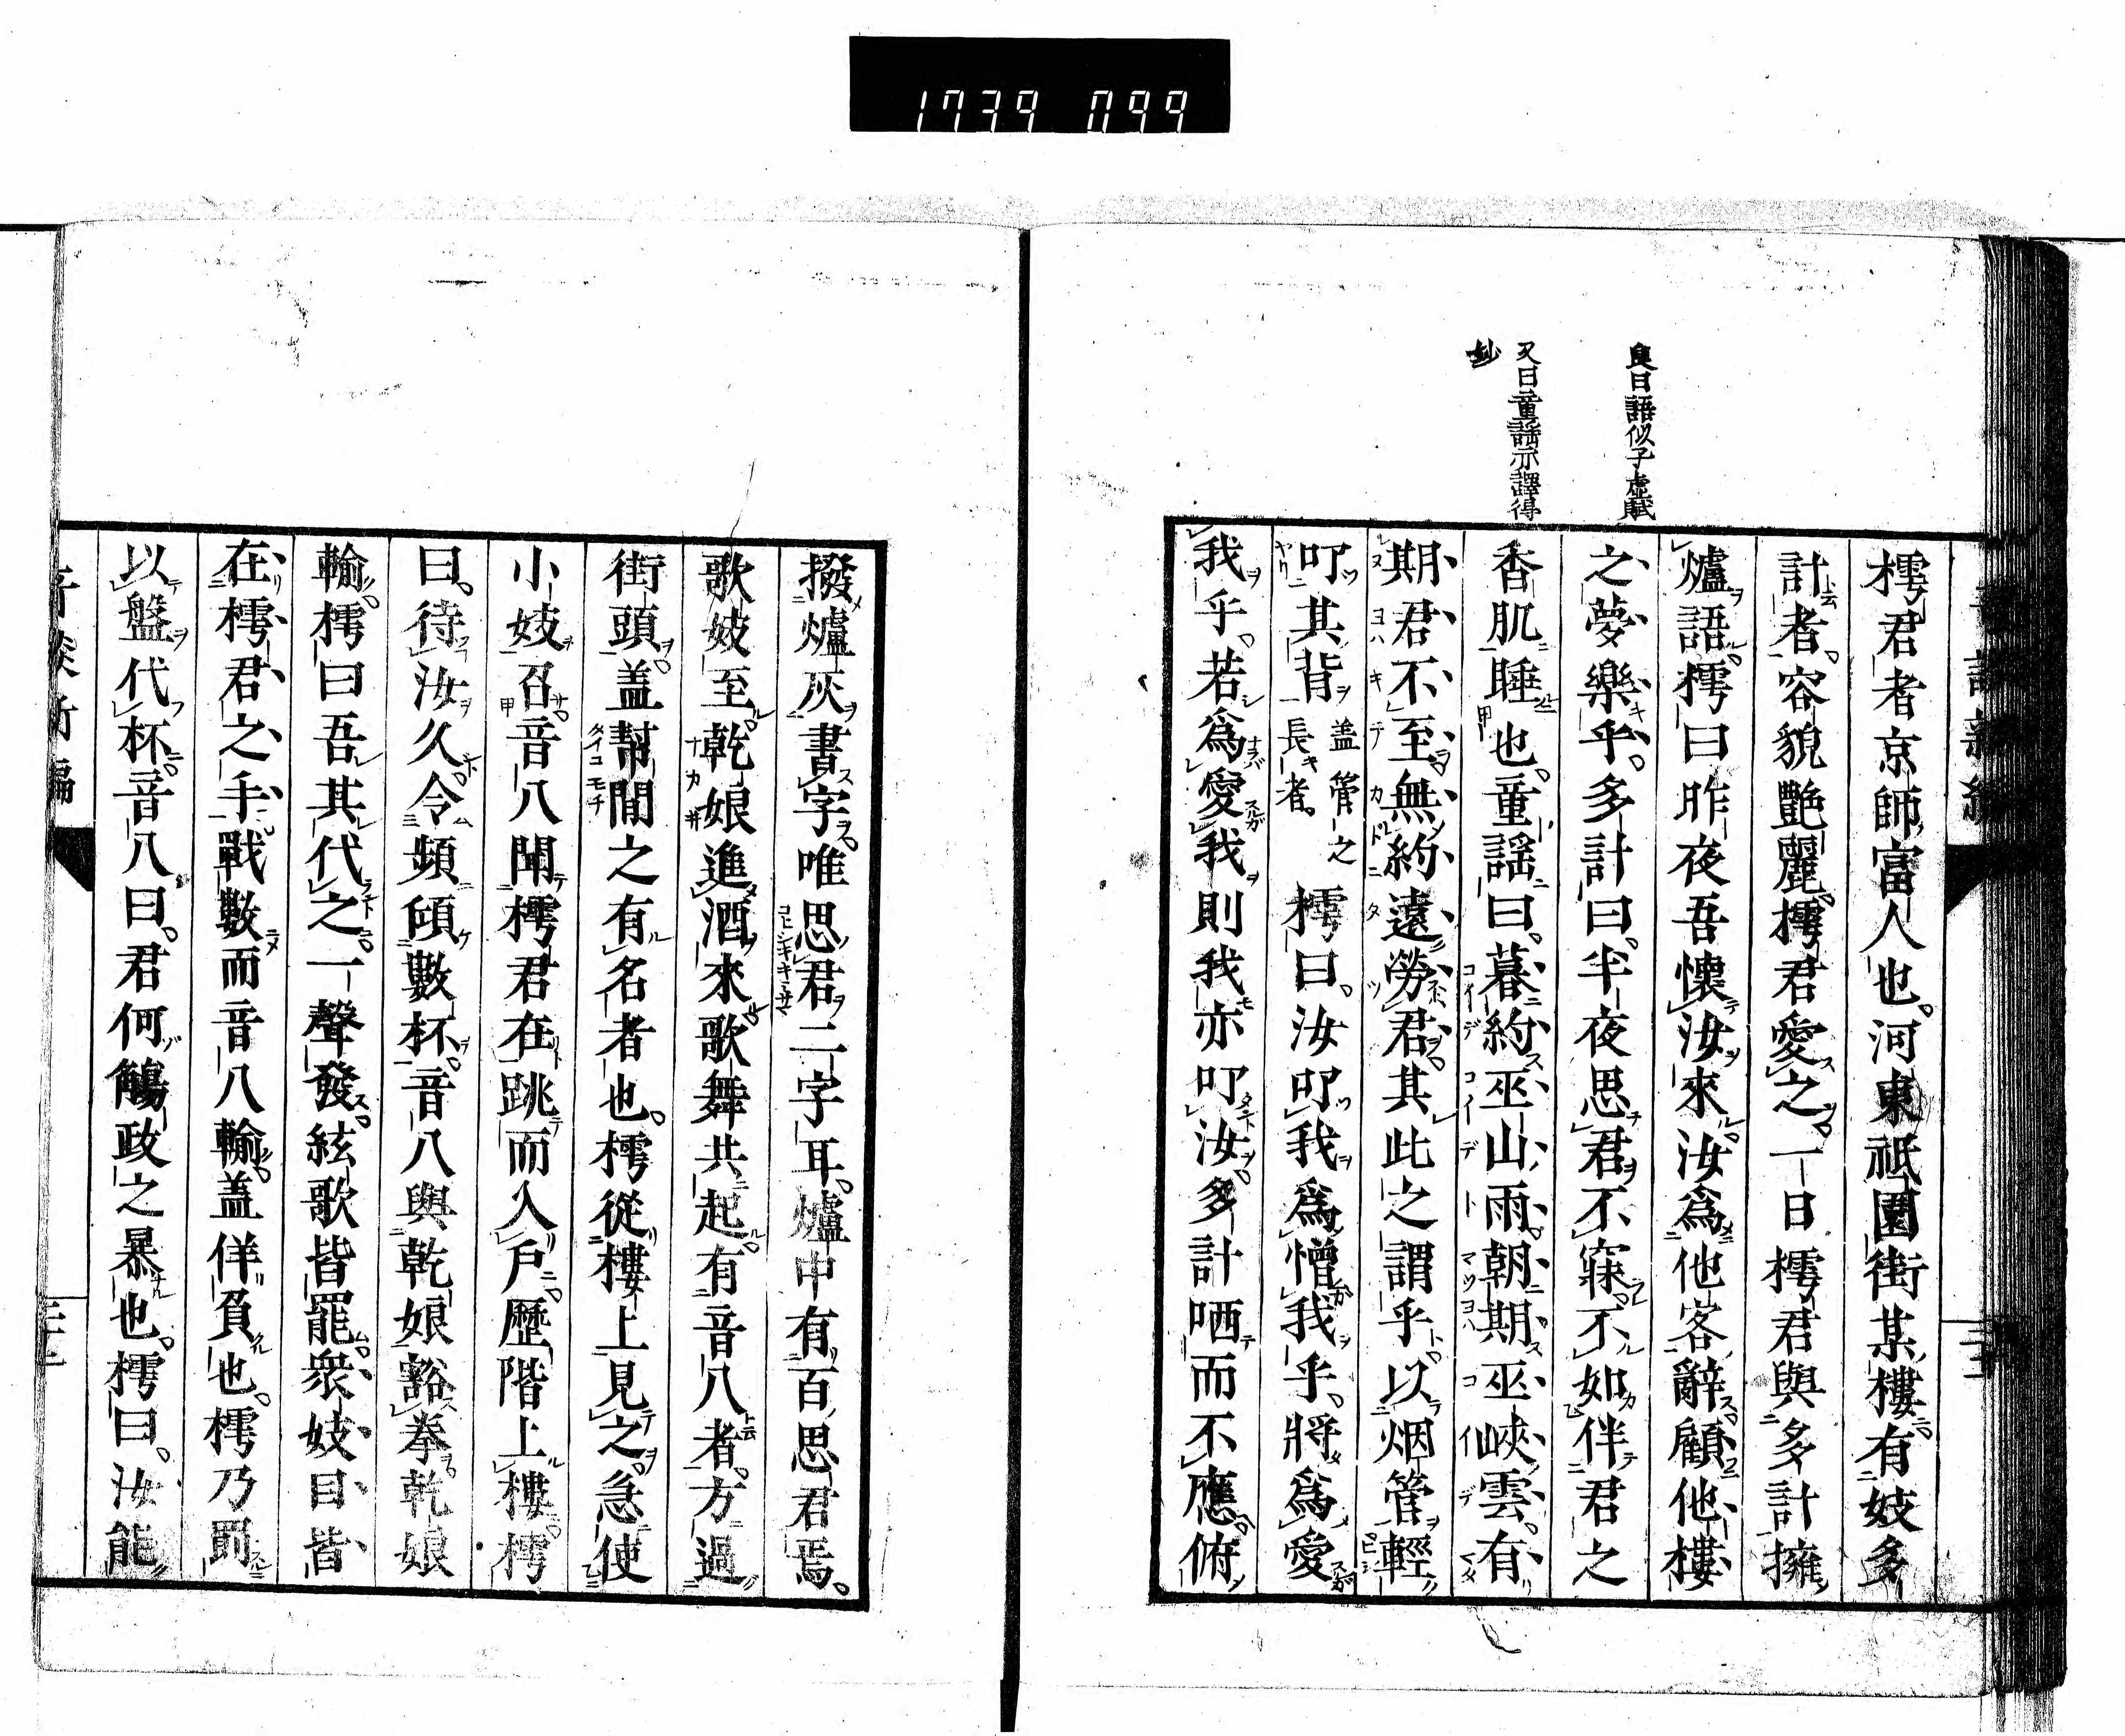 1739 099
臭曰語似子虛賦
又曰童謡示譯得
妙
樗君者京師富人也。河東祗園街某樓有妓多
計者。容貌艷麗。樗君愛之。一日樗君與多計擁
爐語。樗曰昨夜吾懷汝來。汝爲他客辭顧他樓
之夢樂乎。多計曰。半夜思君不寐。不如伴君之
香肌睡也。童謡曰。暮約巫山雨。朝期巫峽雲。有
期君不至。無約遠勞君。其此之謂乎。以烟管輕
叩其背蓋管之長者。樗曰。汝叩我爲憎我乎。將爲愛
我乎。若爲愛我則我亦叩汝。多計哂而不應。俯
撥爐灰書字。唯思君二字耳。爐中有百思君焉。
歌妓至。乾娘進酒來。歌舞共起。有音八者。方過
街頭。蓋幇間之有名者也。樗從樓上見之。急使
小妓召。音八聞樗君在跳而入戶。歷階上樓。樗
曰。待汝久。令頻傾數杯。音八與乾娘豁拳。乾娘
輸。樗曰吾其代之。一聲發。絃歌皆罷。衆妓目皆
在樗君之手。戰數而音八輸。蓋佯負也。樗乃罰
以盤代杯。音八曰。君何觴政之暴也。樗曰。汝能